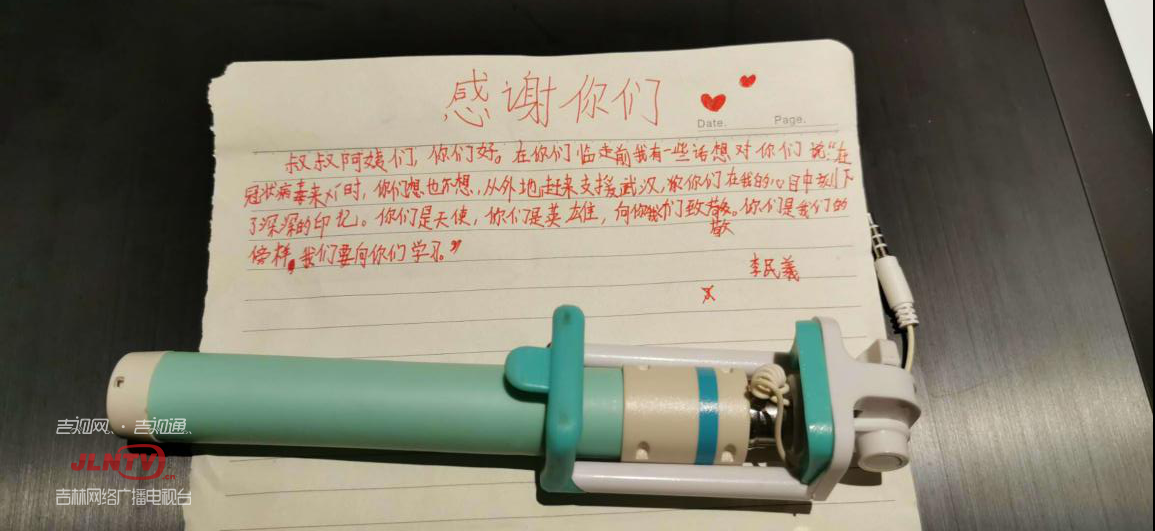 感谢你们
Date.
Page.
叔叔阿姨们,你们好。在你们临走前我有一些话想对你们说:“在
冠状病毒来时,你们想也不想,从外地赶来支援武汉,你们在我的心目中刻下
了深深的印记。你们是天使,你们是英雄,向你们致敬。你们是我们的
榜样,我们要向你们学习。”
李民羲
吉视网、吉视通、
JLNTV.cn
吉林网络广播电视台